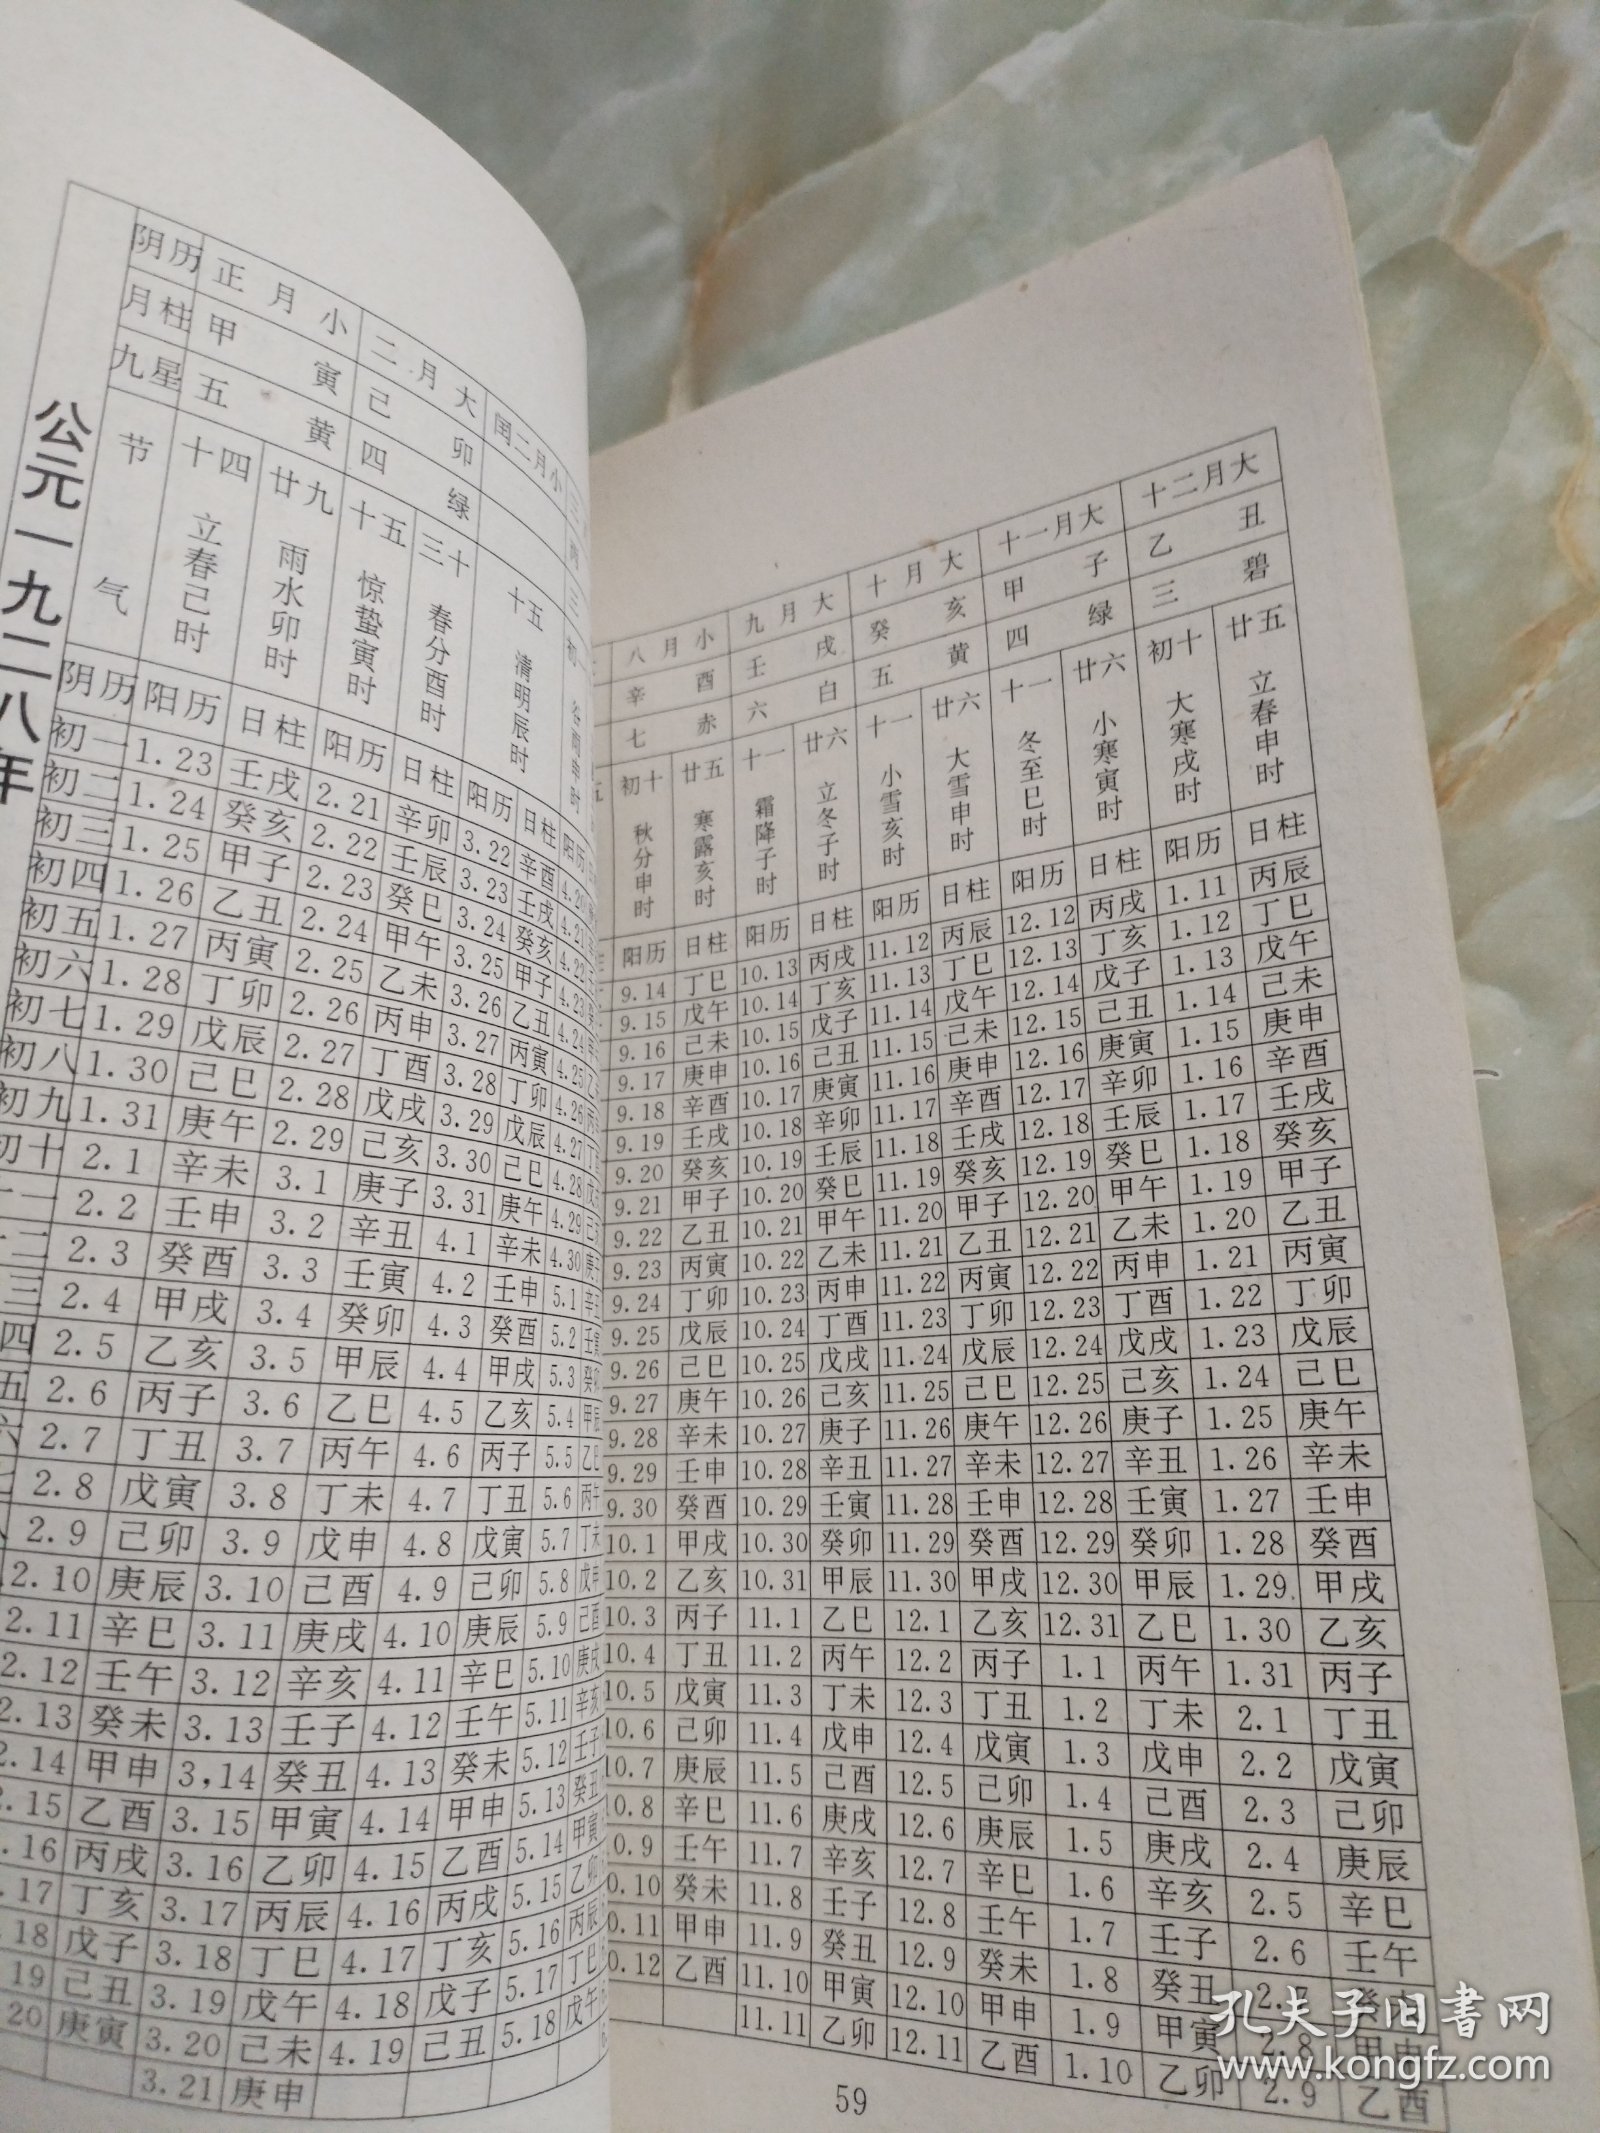 公元一九二八年
阴历 正月小 二月大 闰二月小
月柱 甲寅 己卯
九星 五黄 四绿
节气 十四 立春巳时 廿九 雨水卯时 十五 惊蛰寅时 三十 春分酉时 十五 清明辰时 初一 谷雨申时
阴历 阳历 日柱 阳历 日柱 阳历 日柱 阳历
初一 1.23 壬戌 2.21 辛卯 3.22 辛酉 4.20
初二 1.24 癸亥 2.22 壬辰 3.23 壬戌 4.21
初三 1.25 甲子 2.23 癸巳 3.24 癸亥 4.22
初四 1.26 乙丑 2.24 甲午 3.25 甲子 4.23
初五 1.27 丙寅 2.25 乙未 3.26 乙丑 4.24
初六 1.28 丁卯 2.26 丙申 3.27 丙寅 4.25
初七 1.29 戊辰 2.27 丁酉 3.28 丁卯 4.26
初八 1.30 己巳 2.28 戊戌 3.29 戊辰 4.27
初九 1.31 庚午 2.29 己亥 3.30 己巳 4.28
初十 2.1 辛未 3.1 庚子 3.31 庚午 4.29
十一 2.2 壬申 3.2 辛丑 4.1 辛未 4.30
十二 2.3 癸酉 3.3 壬寅 4.2 壬申 5.1
三 2.4 甲戌 3.4 癸卯 4.3 癸酉 5.2 壬寅
四 2.5 乙亥 3.5 甲辰 4.4 甲戌 5.3 癸卯
五 2.6 丙子 3.6 乙巳 4.5 乙亥 5.4 甲辰
六 2.7 丁丑 3.7 丙午 4.6 丙子 5.5 乙巳
2.8 戊寅 3.8 丁未 4.7 丁丑 5.6 丙午
2.9 己卯 3.9 戊申 4.8 戊寅 5.7 丁未
2.10 庚辰 3.10 己酉 4.9 己卯 5.8 戊申
2.11 辛巳 3.11 庚戌 4.10 庚辰 5.9 己酉
2.12 壬午 3.12 辛亥 4.11 辛巳 5.10 庚戌
2.13 癸未 3.13 壬子 4.12 壬午 5.11 辛亥
2.14 甲申 3,14 癸丑 4.13 癸未 5.12 壬子
2.15 乙酉 3.15 甲寅 4.14 甲申 5.13 癸丑
.16 丙戌 3.16 乙卯 4.15 乙酉 5.14 甲寅
.17 丁亥 3.17 丙辰 4.16 丙戌 5.15 乙卯
.18 戊子 3.18 丁巳 4.17 丁亥 5.16 丙辰
19 己丑 3.19 戊午 4.18 戊子 5.17 丁巳
20 庚寅 3.20 己未 4.19 己丑 5.18 戊午
3.21 庚申
八月小 九月大 十月大 十一月大 十二月大
辛酉 壬戌 癸亥 甲子 乙丑
七赤 六白 五黄 四绿 三碧
初十 秋分申时 廿五 寒露亥时 十一 霜降子时 廿六 立冬子时 十一 小雪亥时 廿六 大雪申时 十一 冬至巳时 廿六 小寒寅时 初十 大寒戌时 廿五 立春申时
阳历 日柱 阳历 日柱 阳历 日柱 阳历 日柱 阳历 日柱
9.14 丁巳 10.13 丙戌 11.12 丙辰 12.12 丙戌 1.11 丙辰
9.15 戊午 10.14 丁亥 11.13 丁巳 12.13 丁亥 1.12 丁巳
9.16 己未 10.15 戊子 11.14 戊午 12.14 戊子 1.13 戊午
9.17 庚申 10.16 己丑 11.15 己未 12.15 己丑 1.14 己未
9.18 辛酉 10.17 庚寅 11.16 庚申 12.16 庚寅 1.15 庚申
9.19 壬戌 10.18 辛卯 11.17 辛酉 12.17 辛卯 1.16 辛酉
9.20 癸亥 10.19 壬辰 11.18 壬戌 12.18 壬辰 1.17 壬戌
9.21 甲子 10.20 癸巳 11.19 癸亥 12.19 癸巳 1.18 癸亥
9.22 乙丑 10.21 甲午 11.20 甲子 12.20 甲午 1.19 甲子
9.23 丙寅 10.22 乙未 11.21 乙丑 12.21 乙未 1.20 乙丑
9.24 丁卯 10.23 丙申 11.22 丙寅 12.22 丙申 1.21 丙寅
9.25 戊辰 10.24 丁酉 11.23 丁卯 12.23 丁酉 1.22 丁卯
9.26 己巳 10.25 戊戌 11.24 戊辰 12.24 戊戌 1.23 戊辰
9.27 庚午 10.26 己亥 11.25 己巳 12.25 己亥 1.24 己巳
9.28 辛未 10.27 庚子 11.26 庚午 12.26 庚子 1.25 庚午
9.29 壬申 10.28 辛丑 11.27 辛未 12.27 辛丑 1.26 辛未
9.30 癸酉 10.29 壬寅 11.28 壬申 12.28 壬寅 1.27 壬申
10.1 甲戌 10.30 癸卯 11.29 癸酉 12.29 癸卯 1.28 癸酉
10.2 乙亥 10.31 甲辰 11.30 甲戌 12.30 甲辰 1.29 甲戌
10.3 丙子 11.1 乙巳 12.1 乙亥 12.31 乙巳 1.30 乙亥
10.4 丁丑 11.2 丙午 12.2 丙子 1.1 丙午 1.31 丙子
10.5 戊寅 11.3 丁未 12.3 丁丑 1.2 丁未 2.1 丁丑
10.6 己卯 11.4 戊申 12.4 戊寅 1.3 戊申 2.2 戊寅
10.7 庚辰 11.5 己酉 12.5 己卯 1.4 己酉 2.3 己卯
10.8 辛巳 11.6 庚戌 12.6 庚辰 1.5 庚戌 2.4 庚辰
10.9 壬午 11.7 辛亥 12.7 辛巳 1.6 辛亥 2.5 辛巳
0.10 癸未 11.8 壬子 12.8 壬午 1.7 壬子 2.6 壬午
0.11 甲申 11.9 癸丑 12.9 癸未 1.8 癸丑 2.7 癸未
0.12 乙酉 11.10 甲寅 12.10 甲申 1.9 甲寅 2.8 甲申
11.11 乙卯 12.11 乙酉 1.10 乙卯 2.9 乙酉
59
孔夫子旧书网
www.kongfz.com